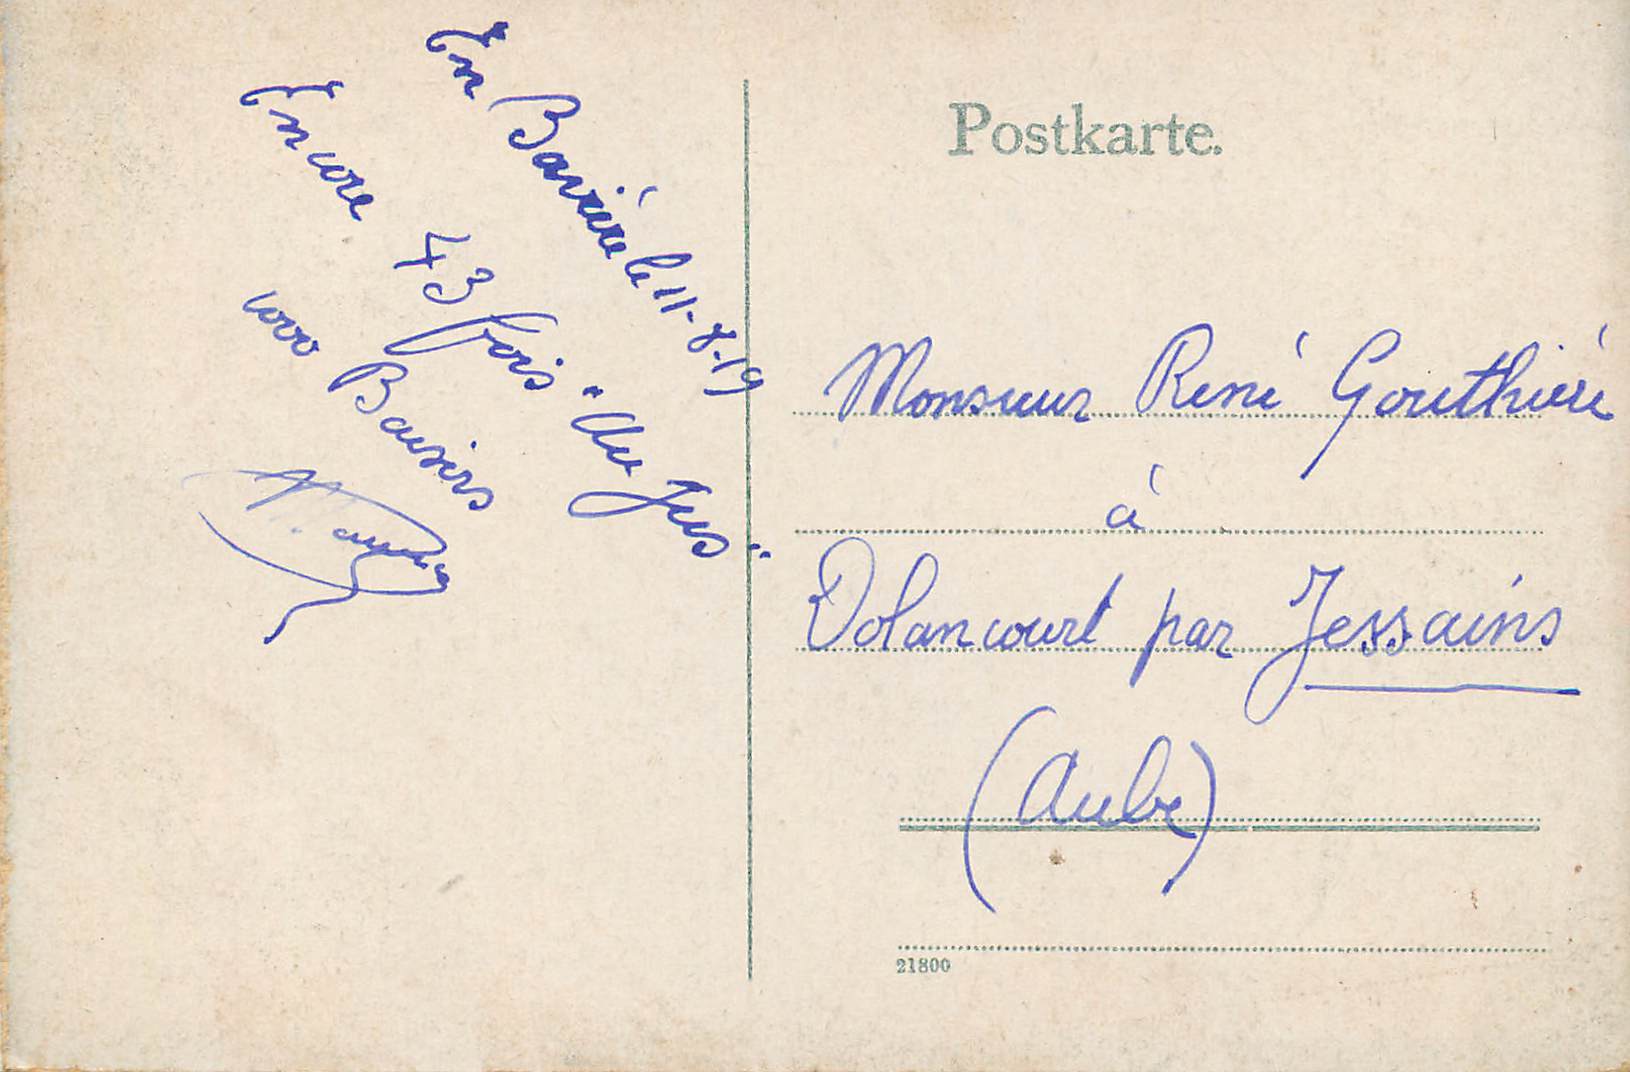 En Bavière le 11-8-19
Encore 43 fois "Au Jus"
1000 Baisers
Postkarte.
Monsieur René Gouthière
à
Dolancourt par Jessains
(Aube)
21800